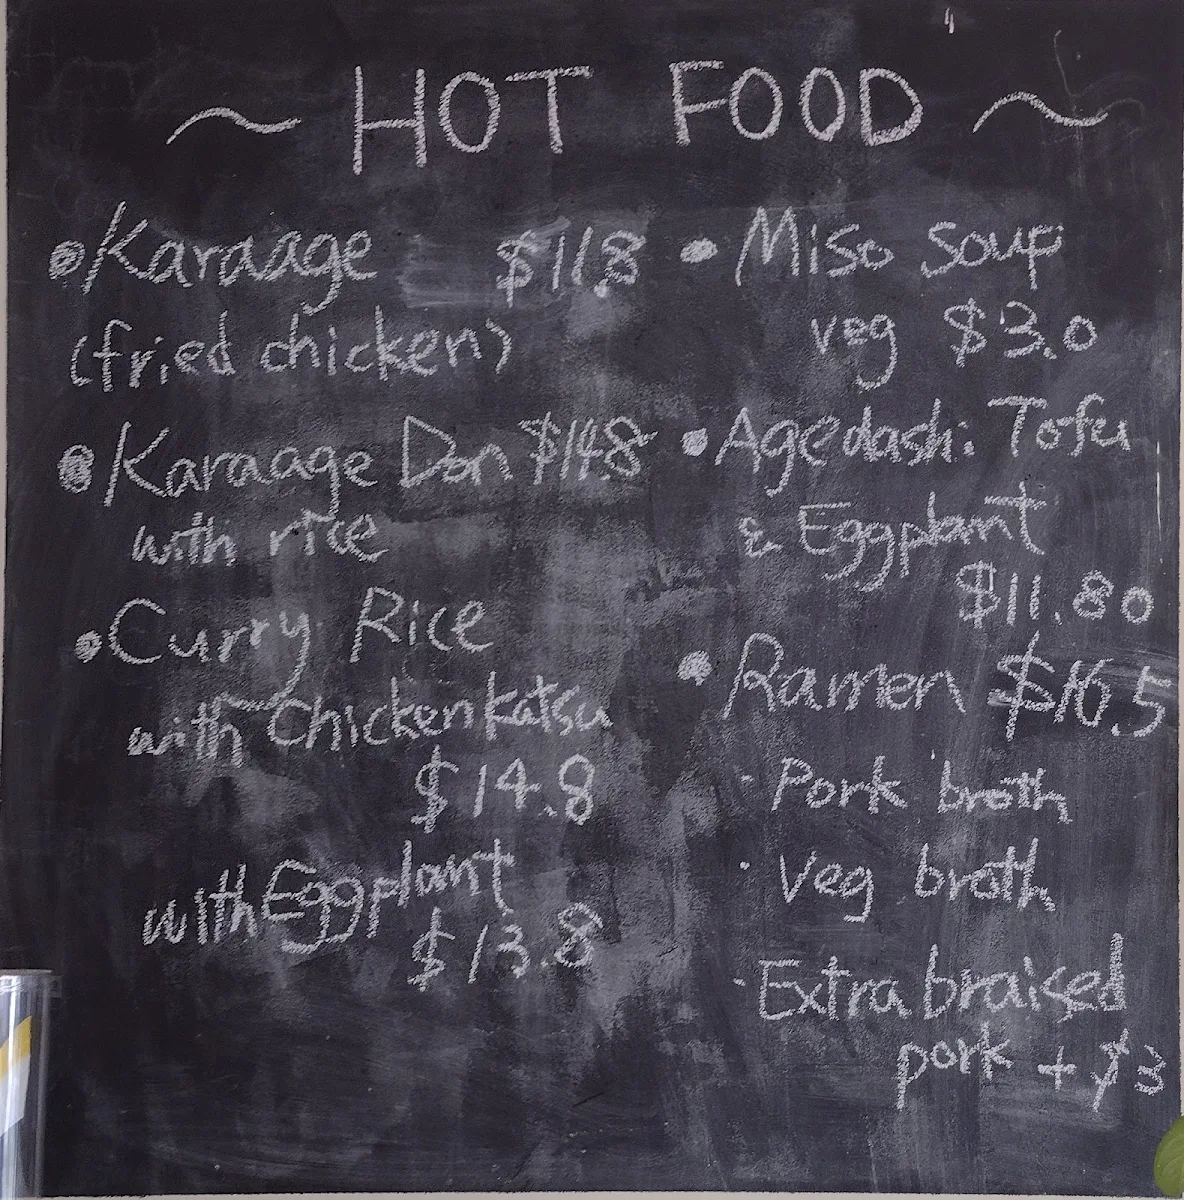 ~ HOT FOOD ~
• Karaage $11.8
(fried chicken)
• Karaage Don $14.8
with rice
• Curry Rice
with Chicken Katsu
$14.8
with Eggplant
$13.8
• Miso Soup
veg $3.0
• Agedashi Tofu
& Eggplant
$11.80
• Ramen $16.5
· Pork broth
· Veg broth
· Extra braised
pork + $3